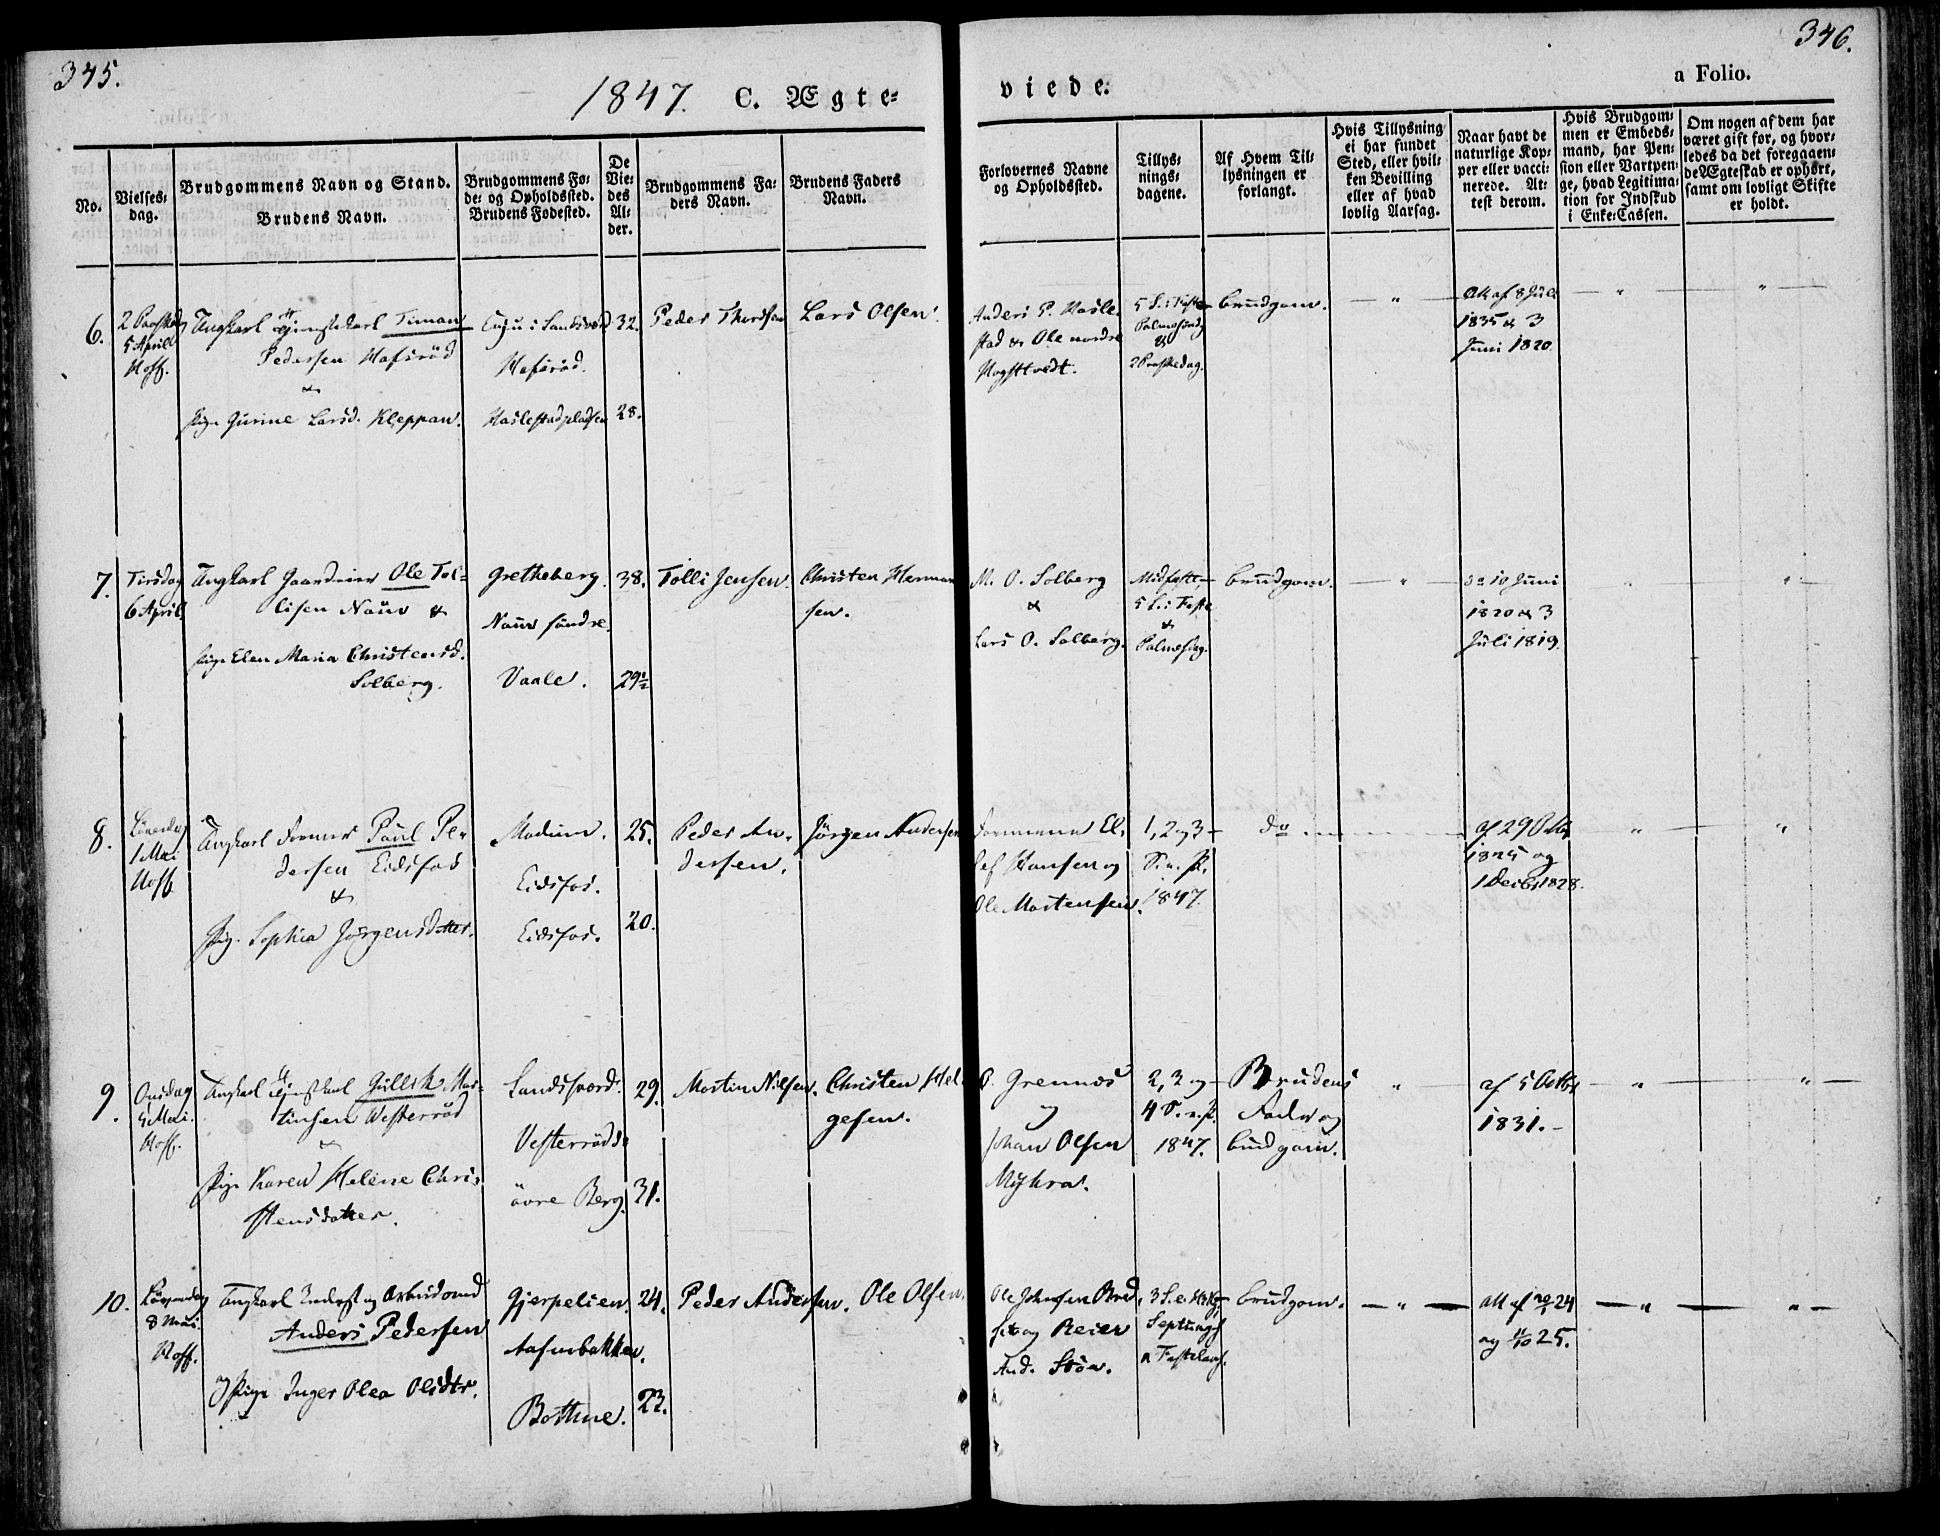 345.
1847. C. Ægte-
viede.
a Folio.
346.
No.
Vielses-
dag.
Brudgommens Navn og Stand.
Brudens Navn.
Brudgommens Fø-
de- og Opholdssted.
Brudens Fødested.
De
Vie-
des
Al-
der.
Brudgommens Fa-
ders Navn.
Brudens Faders
Navn.
Forlovernes Navne
og Opholdssted.
Tillys-
nings-
dagene.
Af Hvem Til-
lysningen er
forlangt.
Hvis Tillysning
ei har fundet
Sted, eller hvil-
ken Bevilling
eller af hvad
lovlig Aarsag.
Naar havt de
naturlige Kop-
per eller vacci-
nerede. At-
test derom.
Hvis Brudgom-
men er Embeds-
mand, har Pen-
sion eller Vartpen-
ge, hvad Legitima-
tion for Indskud
i Enke-Cassen.
Om nogen af dem har
været gift før, og hvor-
ledes da det foregaaen-
de Ægteskab er ophørt,
samt om lovligt Skifte
er holdt.
6.
2 Paaskedag
5 April
Hoff.
Ungkarl Tjenestekarl Timan
Pedersen Hafsröd
&
Pige Gurine Larsd. Kleppan.
i Sandsværd
Hafsröd.
Haslestadpladsen
32.
28.
Peder Thordsen
Lars Olsen.
Anders P. Hasle-
stad & Ole nordre
Hogstvedt.
5 S. i Faste
Palmesönd.
&
2 Paaskedag.
brudgom.
Att. af 8 Juli
1835 & 3
Juni 1820
7.
Tirsdag
6 April.
Ungkarl Gaardeier Ole Tol-
lisen &
Pige Elen Maria Christensd.
Solberg.
Gretheberg.
söndre.
Vaale.
38.
29½
Tolli Jensen.
Christen Herman
sen.
M. O. Solberg
&
Lars O. Solberg.
Midfaste,
5 S. i Faste
&
Palmesdag.
brudgom.
do 10 Juni
1820 & 3
Juli 1819.
8.
Löverdag
1 Mai
Hoff
Ungkarl Former Paul Pe-
dersen Eidsfos
&
Pige Sophia Jörgensdatter.
Modum.
Eidsfos.
Eidsfos.
25.
20.
Peder An-
dersen.
Jörgen Andersen
Formene El-
lef Hansen og
Ole Mortensen.
1, 2 og 3
S. e. P.
1847.
do.
af 29 Oktbr
1825 og
1 Decbr 1828.
9.
Onsdag
5 Mai.
Hoff.
Ungkarl Tjenestekarl Gullik Mar-
tinsen Westerröd
&
Pige Karen Helene Chri-
stensdatter.
Sandsværd.
Vesterröd
övre Berg.
29.
31.
Martin Nilsen.
Christen Hel-
gesen.
P. Grennes
og
Johan Olsen
Myhra.
2, 3 og
4 S. e. P.
1847.
Brudens
Fader og
brudgom.
af 5 Octbr
1831.
10.
Löverdag
8 Mai.
Hoff.
Ungkarl Inderst og Arbeidsmd
Anders Pedersen
og Pige Inger Olea Olsdtr.
Gjerpelien.
Bottne.
24.
23.
Peder Andersen.
Ole Olsen.
og Reier
And. Stöa.
3 S. e. H3K,
Septuag
& Fastelavn.
brudgom.
Att af 24
og 25.